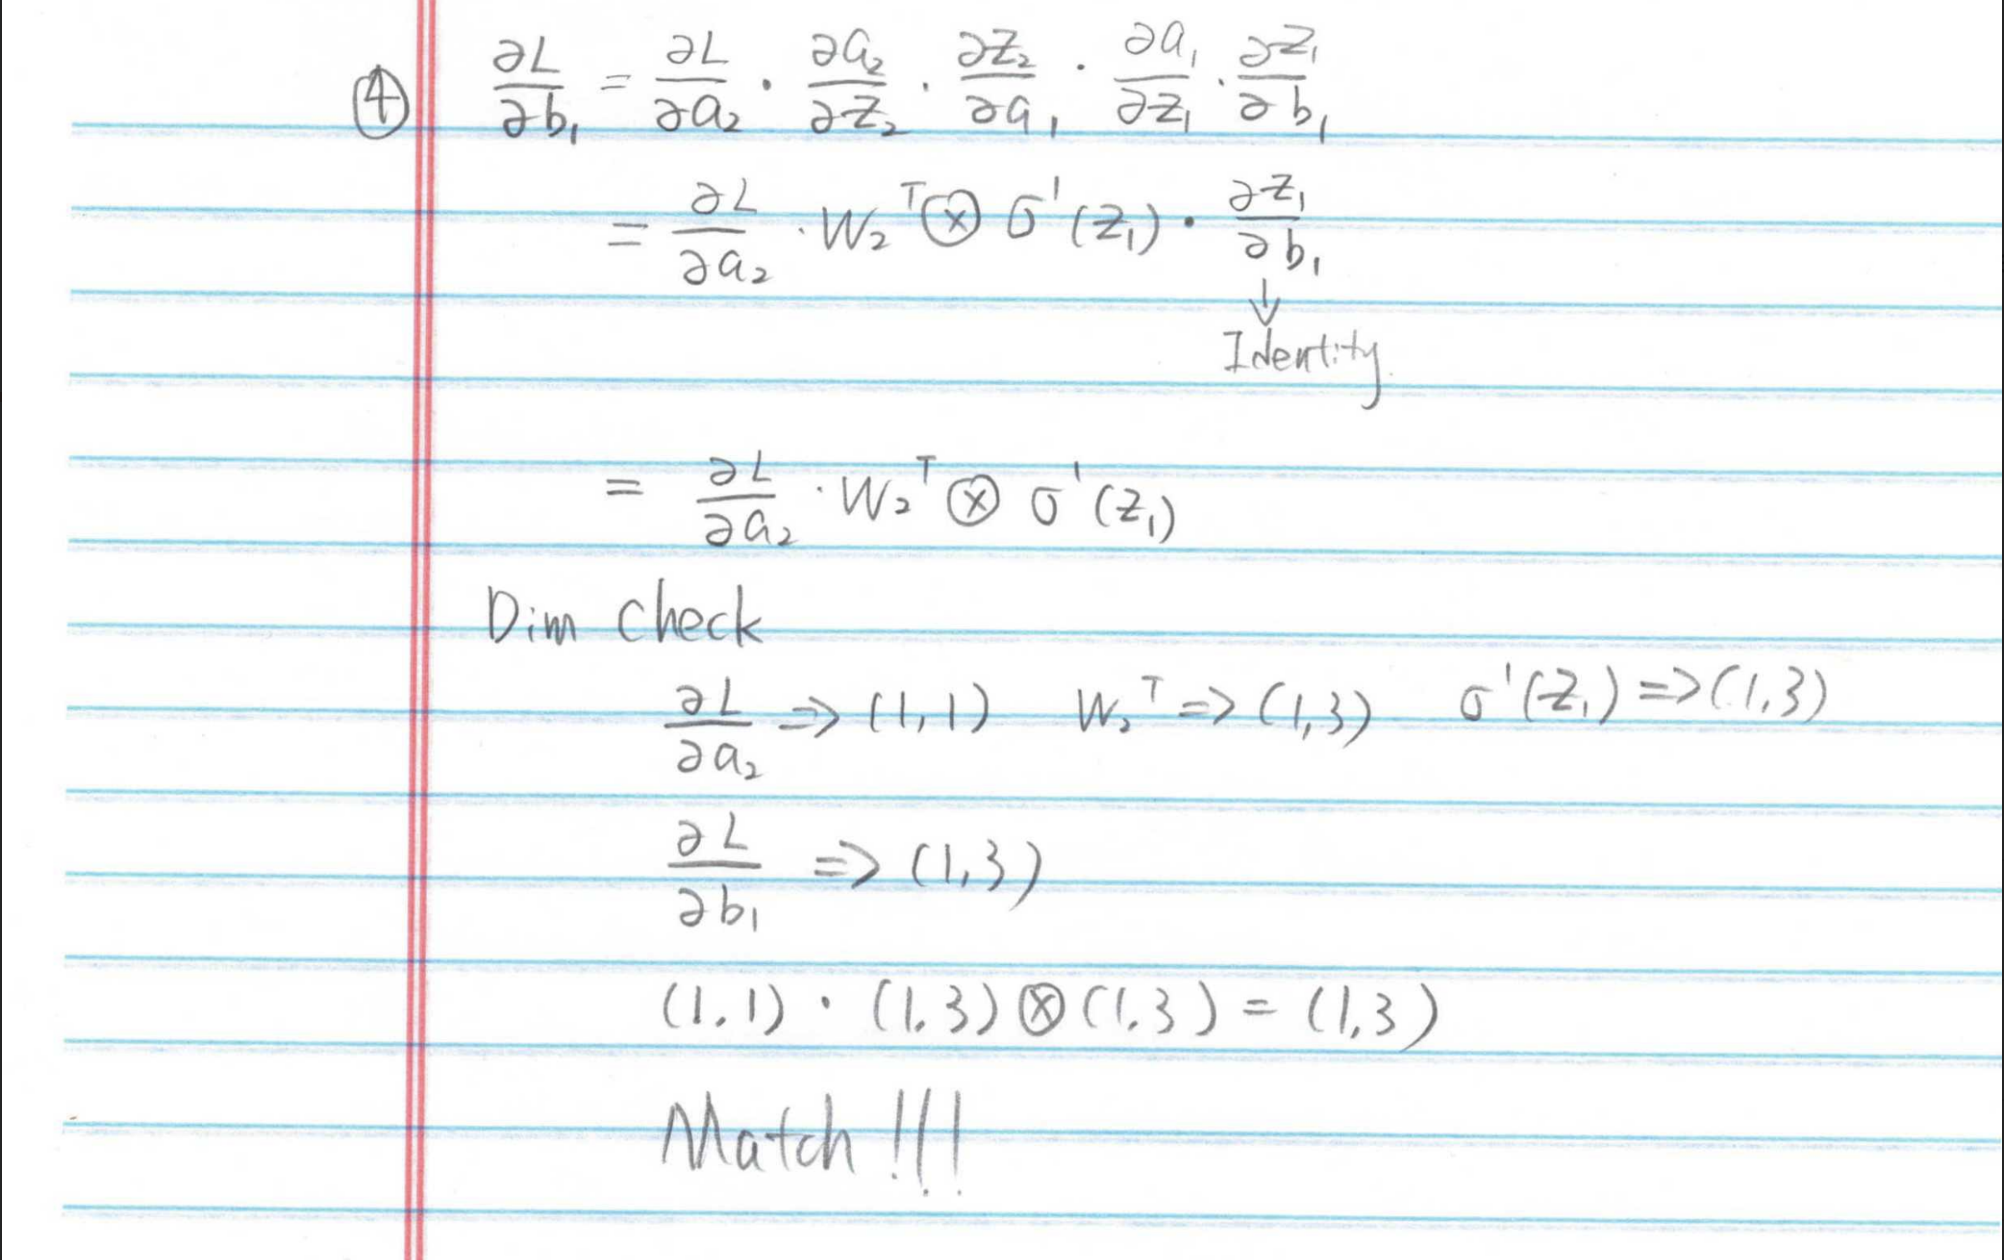 ④ ∂L/∂b₁ = ∂L/∂a₂ · ∂a₂/∂z₂ · ∂z₂/∂a₁ · ∂a₁/∂z₁ · ∂z₁/∂b₁
= ∂L/∂a₂ · W₂ᵀ ⊗ σ'(z₁) · ∂z₁/∂b₁
↓
Identity
= ∂L/∂a₂ · W₂ᵀ ⊗ σ'(z₁)
Dim check
∂L/∂a₂ => (1,1) W₂ᵀ => (1,3) σ'(z₁) => (1,3)
∂L/∂b₁ => (1,3)
(1,1) · (1,3) ⊗ (1,3) = (1,3)
Match!!!